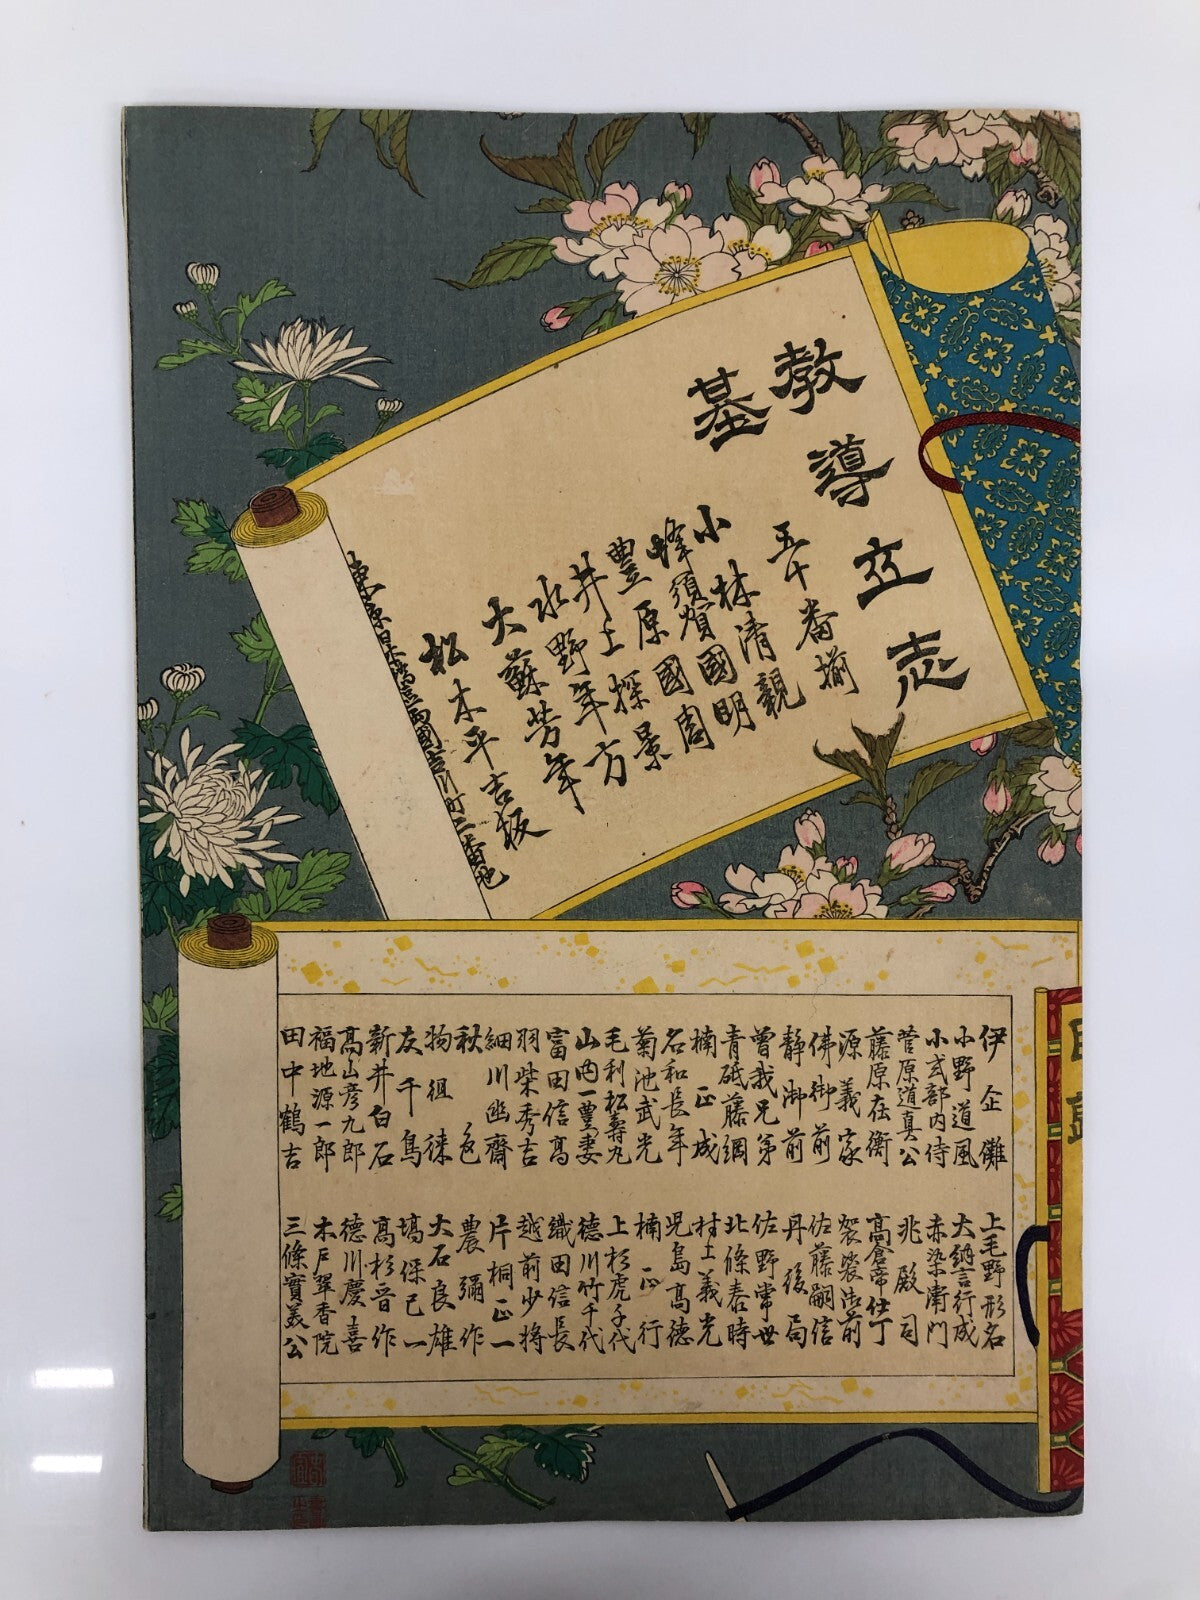 教導立志
基
五十番揃
小林清親
蜂須賀國明
豊原國周
井上探景
水野年方
大蘇芳年
松木平吉板
東京日本橋區両國吉川町二番地
目録
伊企儺
小野道風
小式部内侍
菅原道真公
藤原在衡
源義家
佛御前
静御前
曽我兄弟
青砥藤綱
楠正成
名和長年
菊池武光
毛利松寿丸
山内一豊妻
富田信髙
羽柴秀吉
細川幽齋
秋色
物徂徠
友千鳥
新井白石
髙山彦九郎
福地源一郎
田中鶴吉
上毛野形名
大納言行成
赤染衛門
兆殿司
髙倉帝仕丁
袈裟御前
佐藤嗣信
丹後局
佐野常世
北條泰時
村上義光
児島髙徳
楠正行
上杉虎千代
徳川竹千代
織田信長
越前少将
片桐正一
農彌作
大石良雄
塙保己一
髙杉晋作
徳川慶喜
木戸翠香院
三條實美公